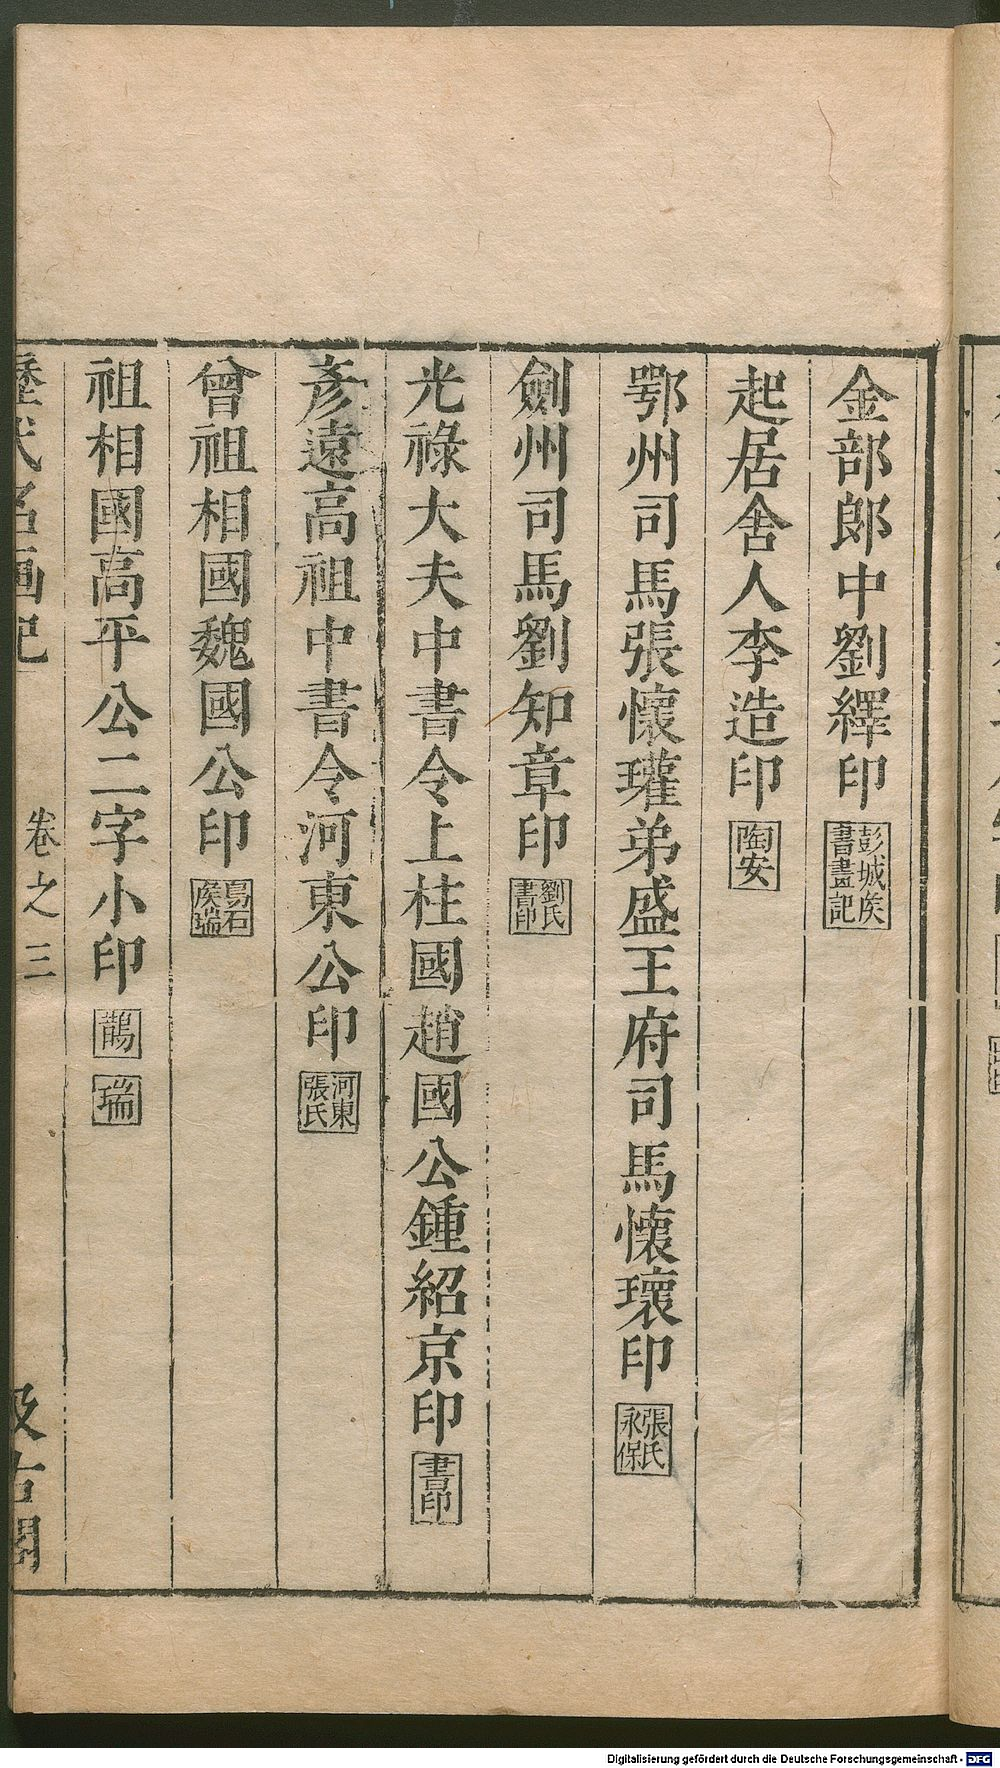 金部郎中劉繹印 彭城矦書畫記
起居舍人李造印 陶安
鄂州司馬張懷瓘弟盛王府司馬懷瓌印 張氏永保
劍州司馬劉知章印 劉氏書印
光祿大夫中書令上柱國趙國公鍾紹京印 書印
彥遠高祖中書令河東公印 河東張氏
曾祖相國魏國公印 烏石矦瑞
祖相國高平公二字小印 鵲 瑞
歷代名畫記 卷之三 汲古閣
Digitalisierung gefördert durch die Deutsche Forschungsgemeinschaft - DFG